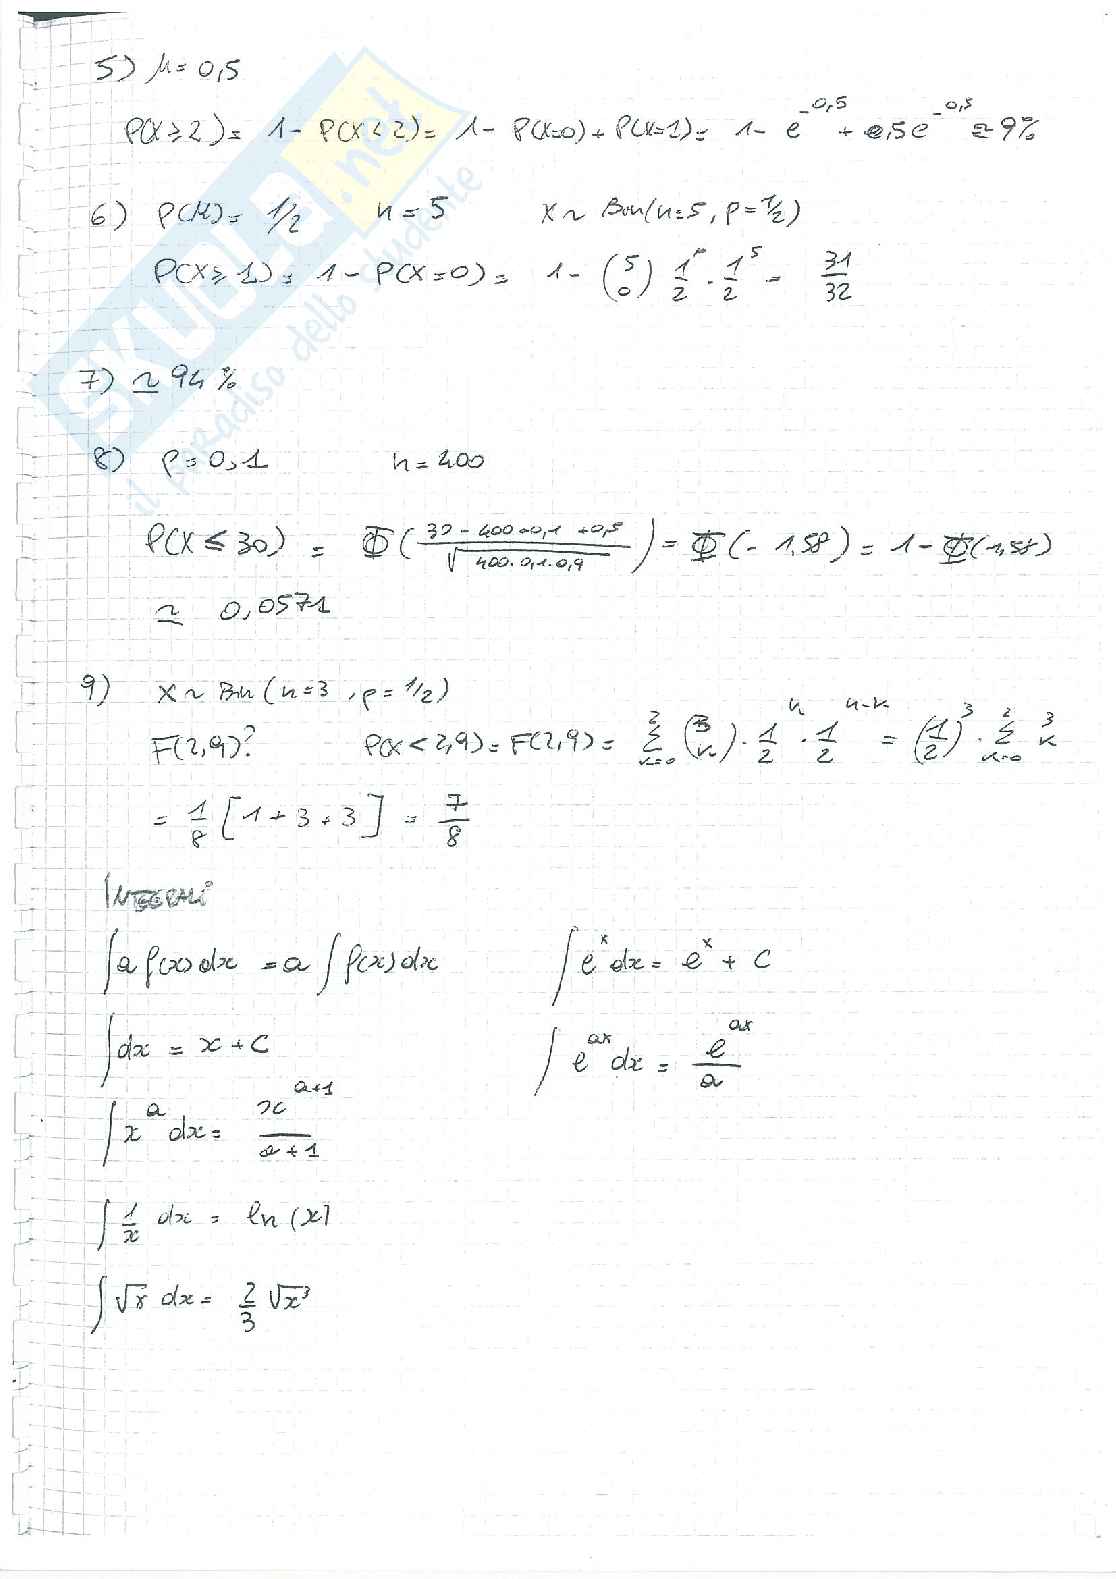 5) μ = 0,5
P(X ≥ 2) = 1 - P(X < 2) = 1 - P(X=0) + P(X=1) = 1 - e^-0,5 + 0,5e^-0,5 ≃ 9%
6) P(M) = 1/2 n = 5 X ~ Bin(n=5, p=1/2)
P(X ≥ 1) = 1 - P(X=0) = 1 - (5 0) 1/2^0 · 1/2^5 = 31/32
7) ≃ 94%
8) p = 0,1 n = 400
P(X ≤ 30) = Φ( (30 - 400·0,1 + 0,5) / √(400·0,1·0,9) ) = Φ(-1,58) = 1 - Φ(1,58)
≃ 0,0571
9) X ~ Bin(n=3, p=1/2)
F(2,9)? P(X < 2,9) = F(2,9) = Σ_{k=0}^{2} (3 k) · 1/2^k · 1/2^{n-k} = (1/2)^3 · Σ_{k=0}^{2} 3 k
= 1/8 [1 + 3 + 3] = 7/8
INTEGRALI
∫a f(x) dx = a ∫f(x) dx ∫e^x dx = e^x + C
∫dx = x + C ∫e^{ax} dx = e^{ax}/a
∫x^a dx = x^{a+1}/(a+1)
∫1/x dx = ln(x)
∫√x dx = 2/3 √x³
SKUOLA.net
il paradiso dello studente